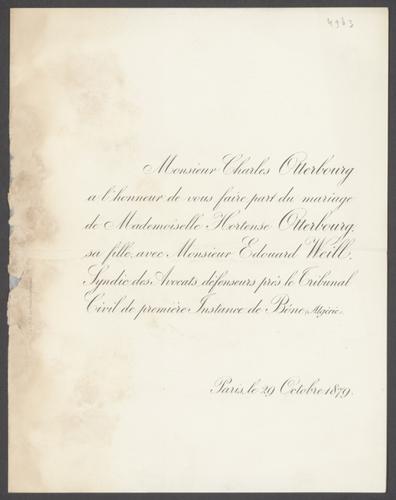 4963
Monsieur Charles Otterbourg
a l'honneur de vous faire part du mariage
de Mademoiselle Hortense Otterbourg,
sa fille, avec Monsieur Edouard Weill,
Syndic des Avocats défenseurs près le Tribunal
Civil de première Instance de Bône, (Algérie).
Paris, le 29 Octobre 1879.